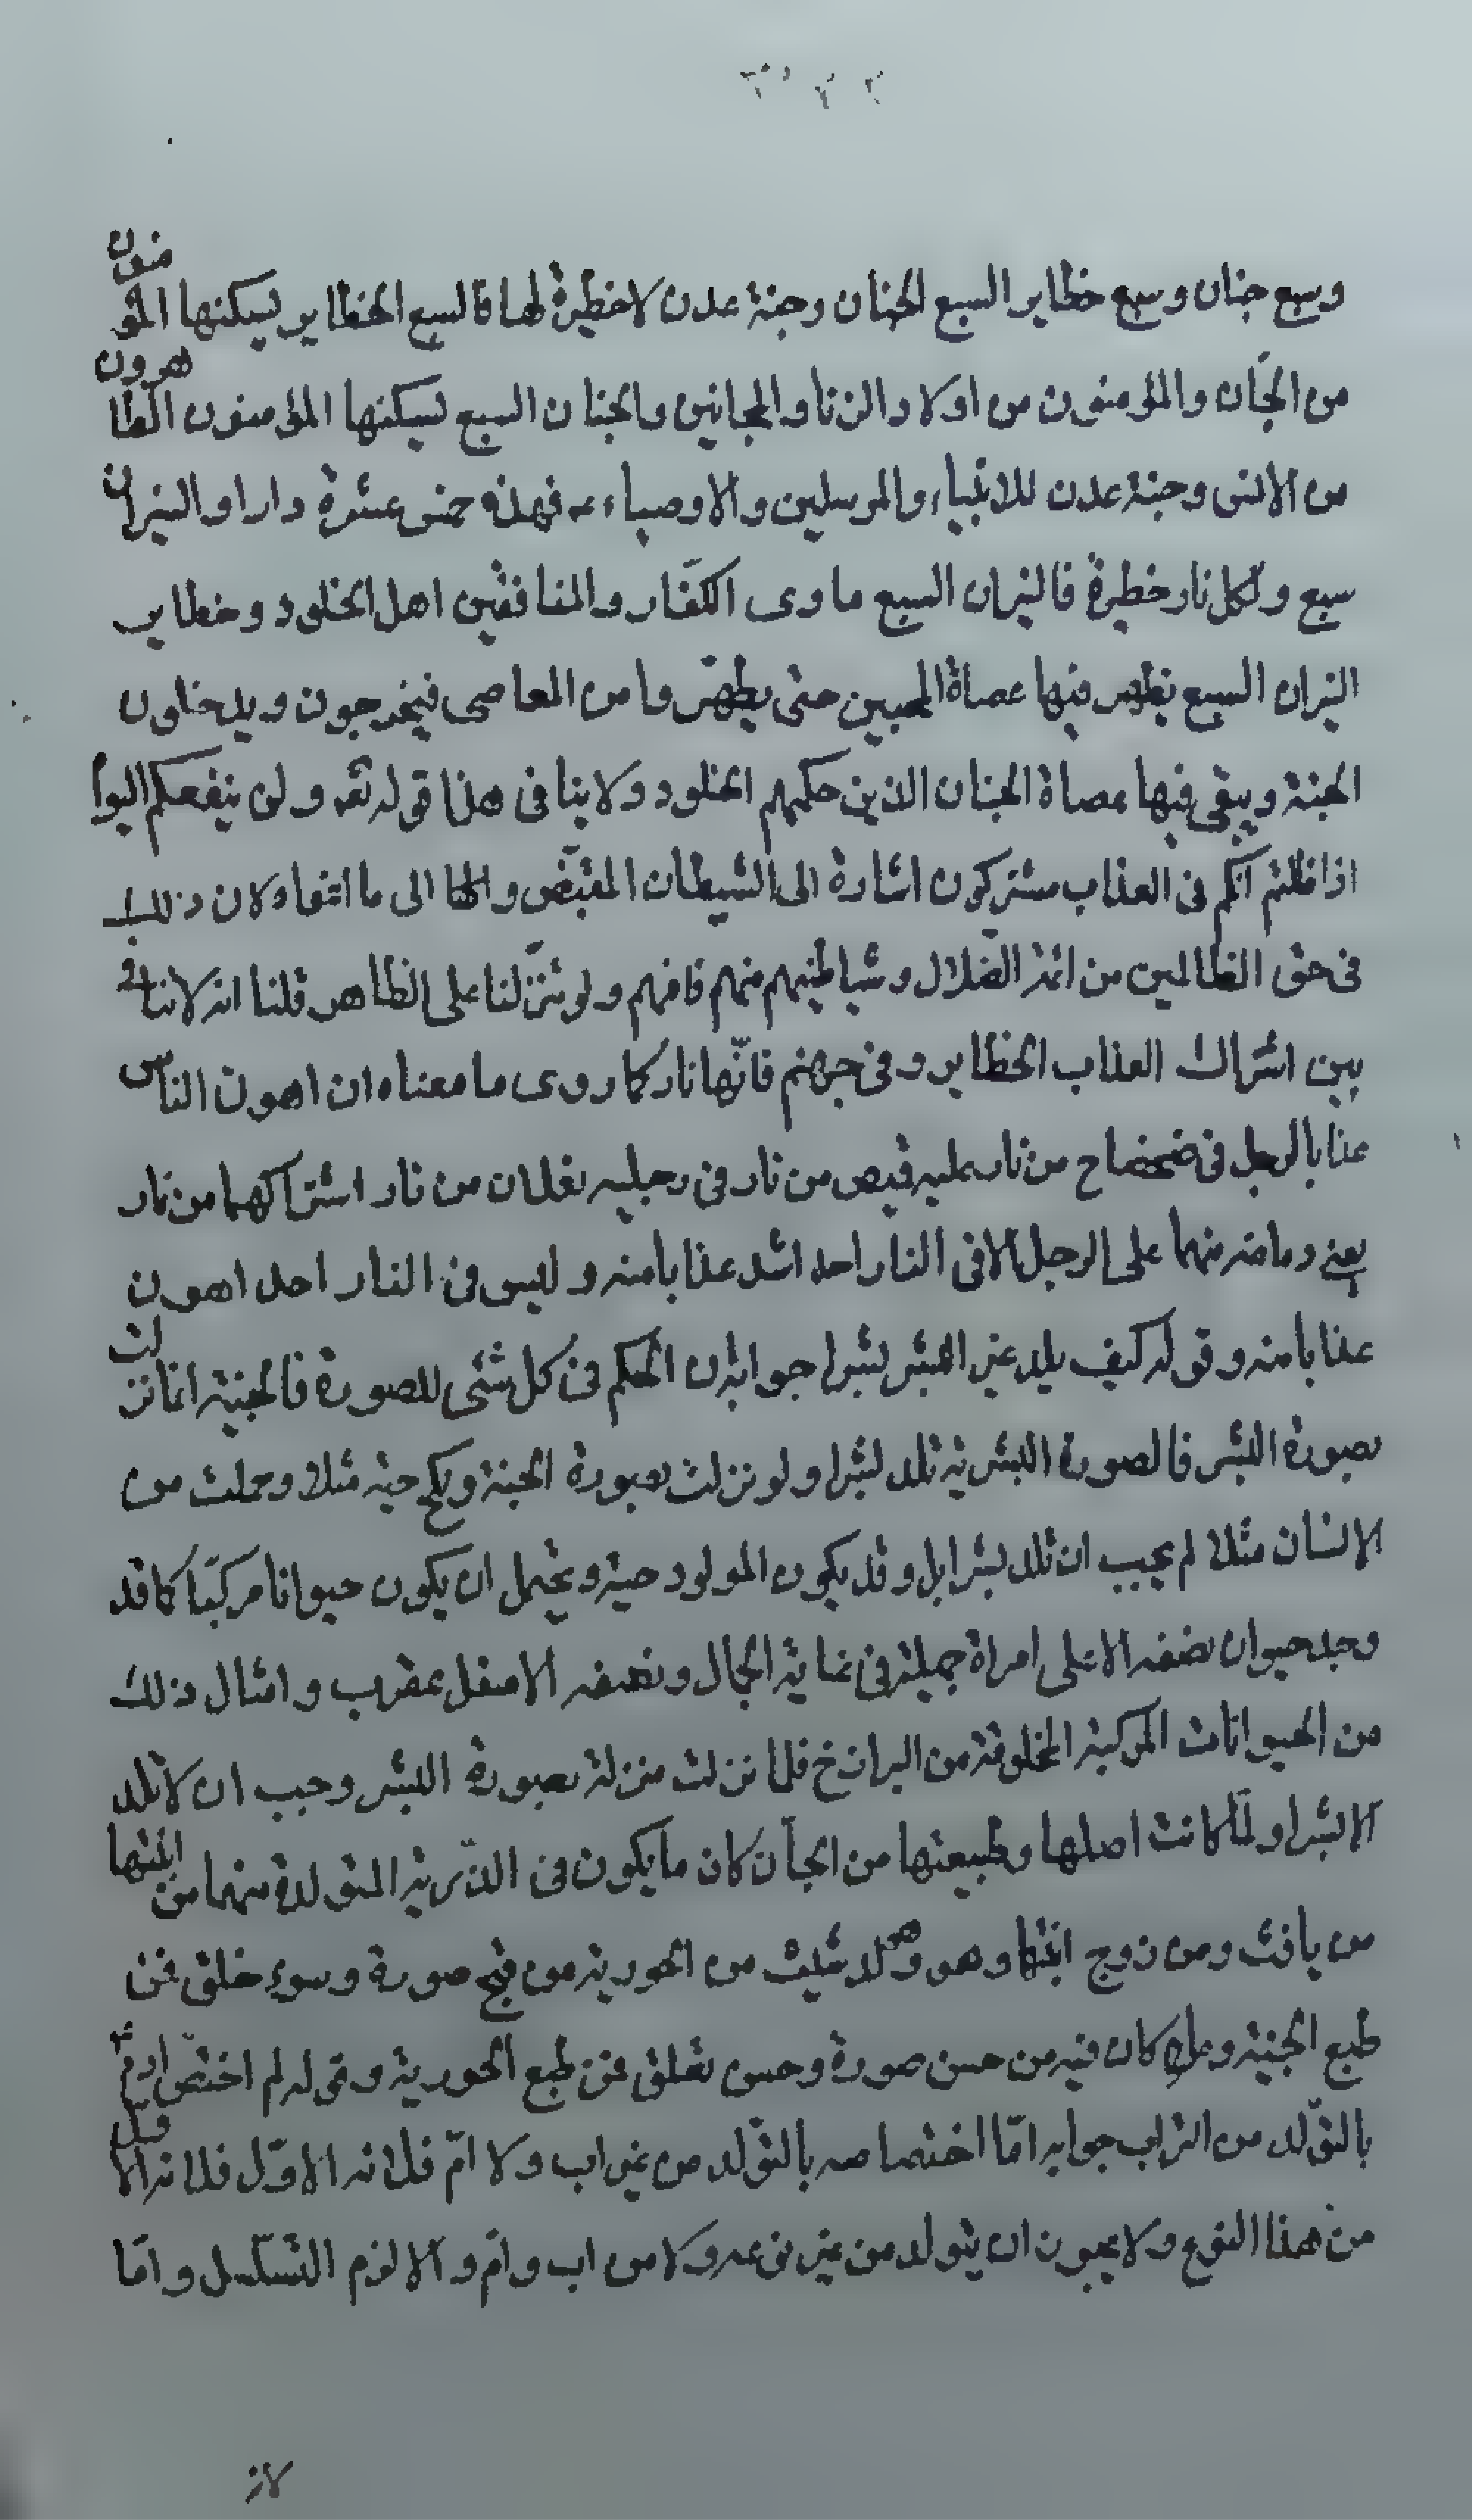 وسبع جنان وسبع خطاير السبع الجنان وجنة عدن لا خطيرة لها فالسبع الخطاير يسكنها المؤمنون
من الجان والمؤمنون من اولاد الزنا والمجانين والجنان السبع يسكنها المؤمنون الطاهرون
من الانس وجنة عدن للانبياء والمرسلين والاوصياء ع فهذه خمس عشرة دارا والنيران
سبع ولكل نار خطيرة فالنيران السبع ماوى الكفار والمنافقين اهل الخلود وخطاير
النيران السبع يطهر فيها عصاة المحبين حتى يطهّروا من المعاصى فيخرجون ويدخلون
الجنة ويبقى فيها عصاة الجنان الذين حكمهم الخلود ولا ينافى هذا قوله تعه ولن ينفعكم اليوم
اذ ظلمتم انكم فى العذاب مشتركون اشارة الى الشيطان المقيّض والها الى ما اتفاه لان ذلك
فى حق الظالمين من ائمة الضلال وشياطينهم منهم فافهم ولو تنزّلنا على الظاهر قلنا انه لا تنافى
بين اشتراك العذاب الخطاير وفى جهنم فانّها نار كما روى ما معناه ان اهون الناس
عذابا لرجل فى ضحضاح من نار عليه قميص من نار فى رجليه نعلان من نار اشتراكهما من نار
يعنى دماغه منهما على الرجل الا فى النار احد اشد عذابا منه وليس فى النار احد اهون
عذابا منه وقوله كيف يلد غير البشر بشرا جوابه ان الحكم فى كل شئ للصورة فالجنية انما نزلت
بصورة البشر فالصورة البشرية تلد بشرا ولو نزلت بصورة الجنة ويكح حية مثلا وحملت من
الانسان مثلا لم يجب ان تلد بشرا بل وقد يكون المولود حية ويحتمل ان يكون حيوانا مركبّا كما قد
وجد حيوان نصفه الاعلى امراة جميلة فى غاية الجمال ونصفه الاسفل عقرب وامثال ذلك
من الحيوانات المركبة المخلوقة من البرازخ فلما نزلت منزلة بصورة البشر وجب ان لا تلد
الا بشرا ولمّا كانت اصلها وطبيعتها من الجآن كان ما يكون فى الذّرية المتولدة منهما من ابنتها
من يافث ومن زوج ابنتها وهو ولد شيث من الحورية من قبح صورة وسوء خلق فمن
طبع الجنية وما كان فيه من حسن صورة وحسن تعلق فمن طبع الحورية وقوله لم اختصّ ادم ع
بالتوّلد من التراب جوابه امّا اختصاصه بالتوّلد من غير اب ولا امّ فلانه الاوّل فلانه الاوّل
من هذا النوع ولا يجوز ان يتولد من غير نوعه ولا من اب وامّ والا لزم التسلسل وامّا
لانّ